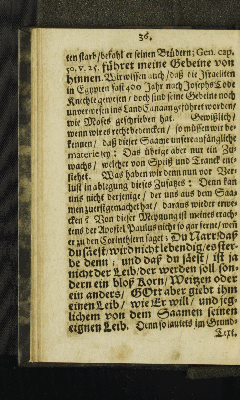 36.
ten starb/ befahl er seinen Brüdern; Gen. cap.
50. v. 25. führet meine Gebeine von
hinnen. Wir wissen auch/ daß die Israeliten
in Egypten fast 400 Jahr nach Josephs Tode
Knechte gewesen/ doch sind seine Gebeine noch
unverwesen ins Land Canaan geführet worden/
wie Moses geschrieben hat. Gewißlich/
wenn wir es recht bedencken/ so müssen wir be-
kennen/ daß dieser Saame unsere anfängliche
materie sey: Das übrige aber nur ein Zu-
wachs/ welcher von Speiß und Tranck ent-
stehet. Was haben wir denn nun vor Ver-
lust in ablegung dieses Zusatzes: Denn kan
uns nicht derjenige/ der uns aus dem Saa-
men zuerst gemachet hat/ daraus wieder erwe-
cken? Von dieser Meynung ist meines erach-
tens der Apostel Paulus nicht so gar fern/ weñ
er zu den Corinthern saget: Du Narr/ daß
du säest/ wird nicht lebendig/ es ster-
be denn; und daß du säest/ ist ja
nicht der Leib/ der werden soll son-
dern ein bloß Korn/ Weitzen oder
ein anders/ GOtt aber giebt ihm
einen Leib/ wie Er will/ und jeg-
lichem von dem Saamen seinen
eignen Leib. Denn so lautets im Grund-
Text,